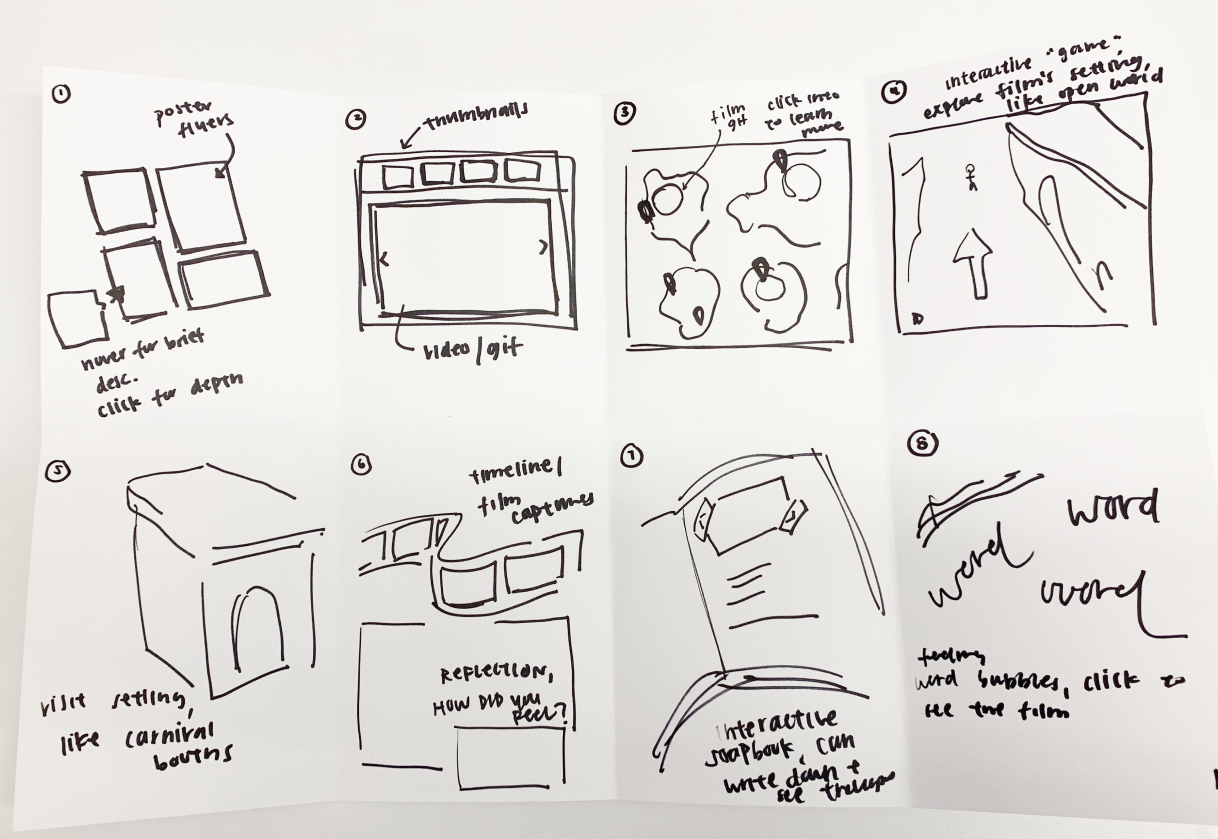 1
poster
flyers
hover for brief
desc.
click for depth
2
thumbnails
video/gif
3
film
gif
click into
to learn
more
4
interactive "game"
explore film's setting,
like open world
5
visit setting,
like carnival
booths
6
timeline/
film
captures
REFLECTION,
HOW DID YOU
FEEL?
7
interactive
scrapbook, can
write down +
see
8
word
word
word
feeling
word bubbles, click to
see the film